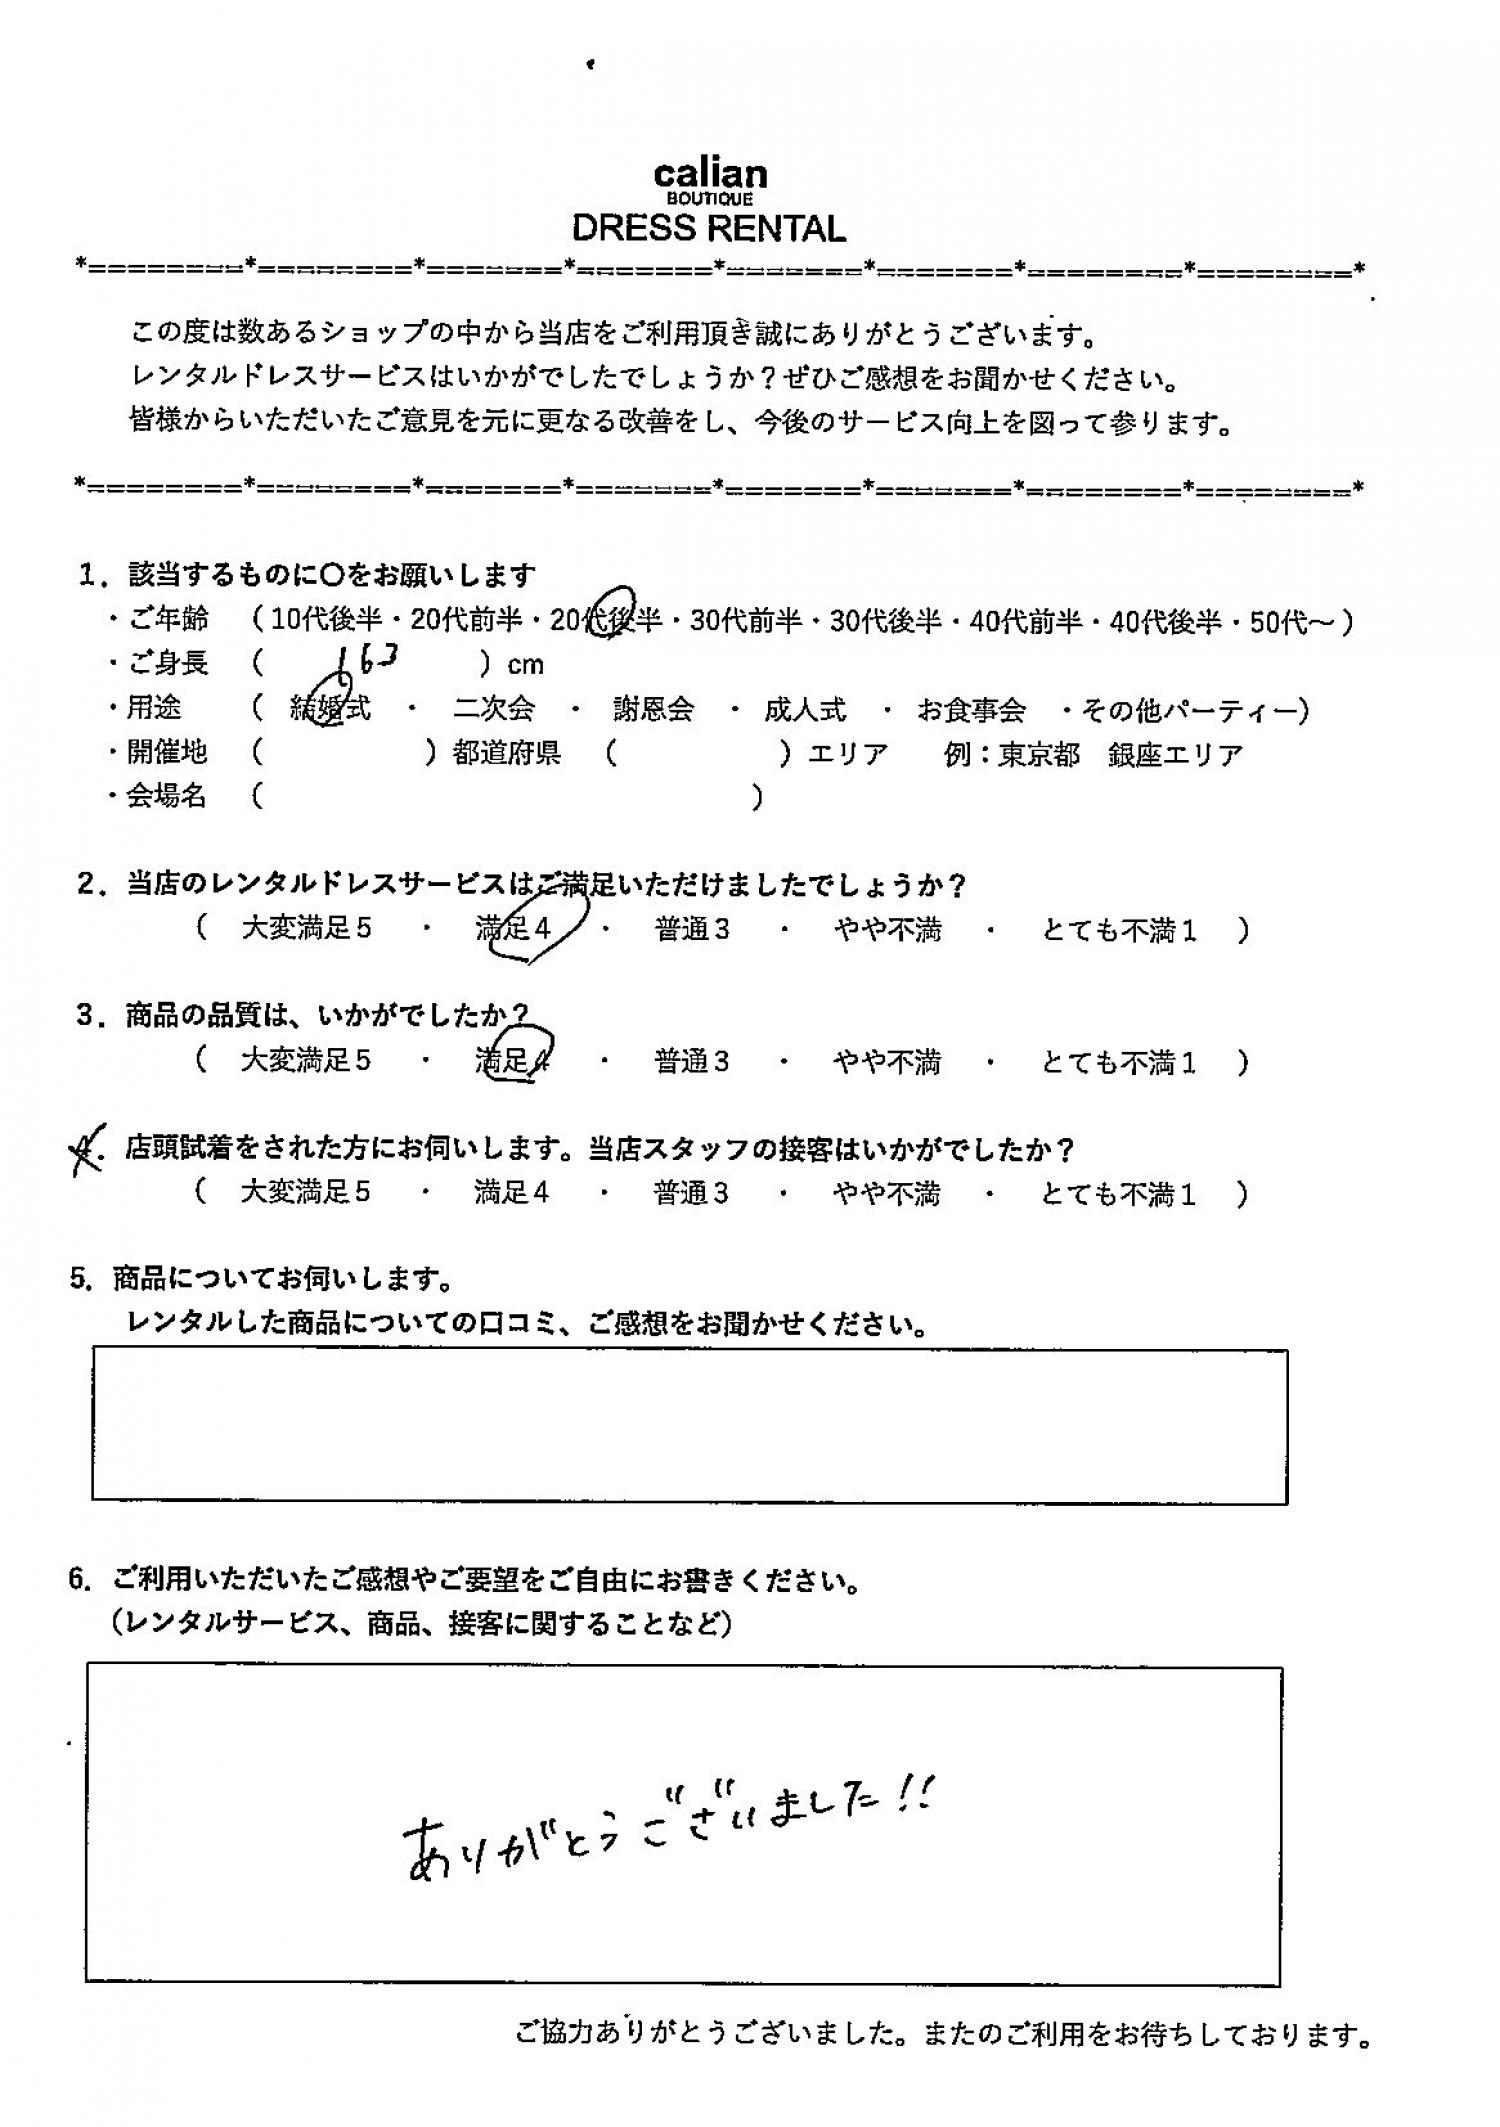 calian
BOUTIQUE
DRESS RENTAL
*========*========*=======*=======*=======*=======*========*========*
この度は数あるショップの中から当店をご利用頂き誠にありがとうございます。
レンタルドレスサービスはいかがでしたでしょうか？ぜひご感想をお聞かせください。
皆様からいただいたご意見を元に更なる改善をし、今後のサービス向上を図って参ります。
*========*========*=======*=======*=======*=======*========*========*
1．該当するものに〇をお願いします
・ご年齢 （10代後半・20代前半・20代後半・30代前半・30代後半・40代前半・40代後半・50代～）
・ご身長 （ 163 ）cm
・用途 （ 結婚式 ・ 二次会 ・ 謝恩会 ・ 成人式 ・ お食事会 ・その他パーティー）
・開催地 （ ）都道府県 （ ）エリア 例：東京都 銀座エリア
・会場名 （ ）
2．当店のレンタルドレスサービスはご満足いただけましたでしょうか？
（ 大変満足５ ・ 満足４ ・ 普通３ ・ やや不満 ・ とても不満１ ）
3．商品の品質は、いかがでしたか？
（ 大変満足５ ・ 満足４ ・ 普通３ ・ やや不満 ・ とても不満１ ）
4．店頭試着をされた方にお伺いします。当店スタッフの接客はいかがでしたか？
（ 大変満足５ ・ 満足４ ・ 普通３ ・ やや不満 ・ とても不満１ ）
5．商品についてお伺いします。
レンタルした商品についての口コミ、ご感想をお聞かせください。
6．ご利用いただいたご感想やご要望をご自由にお書きください。
（レンタルサービス、商品、接客に関することなど）
ありがとうございました!!
ご協力ありがとうございました。またのご利用をお待ちしております。